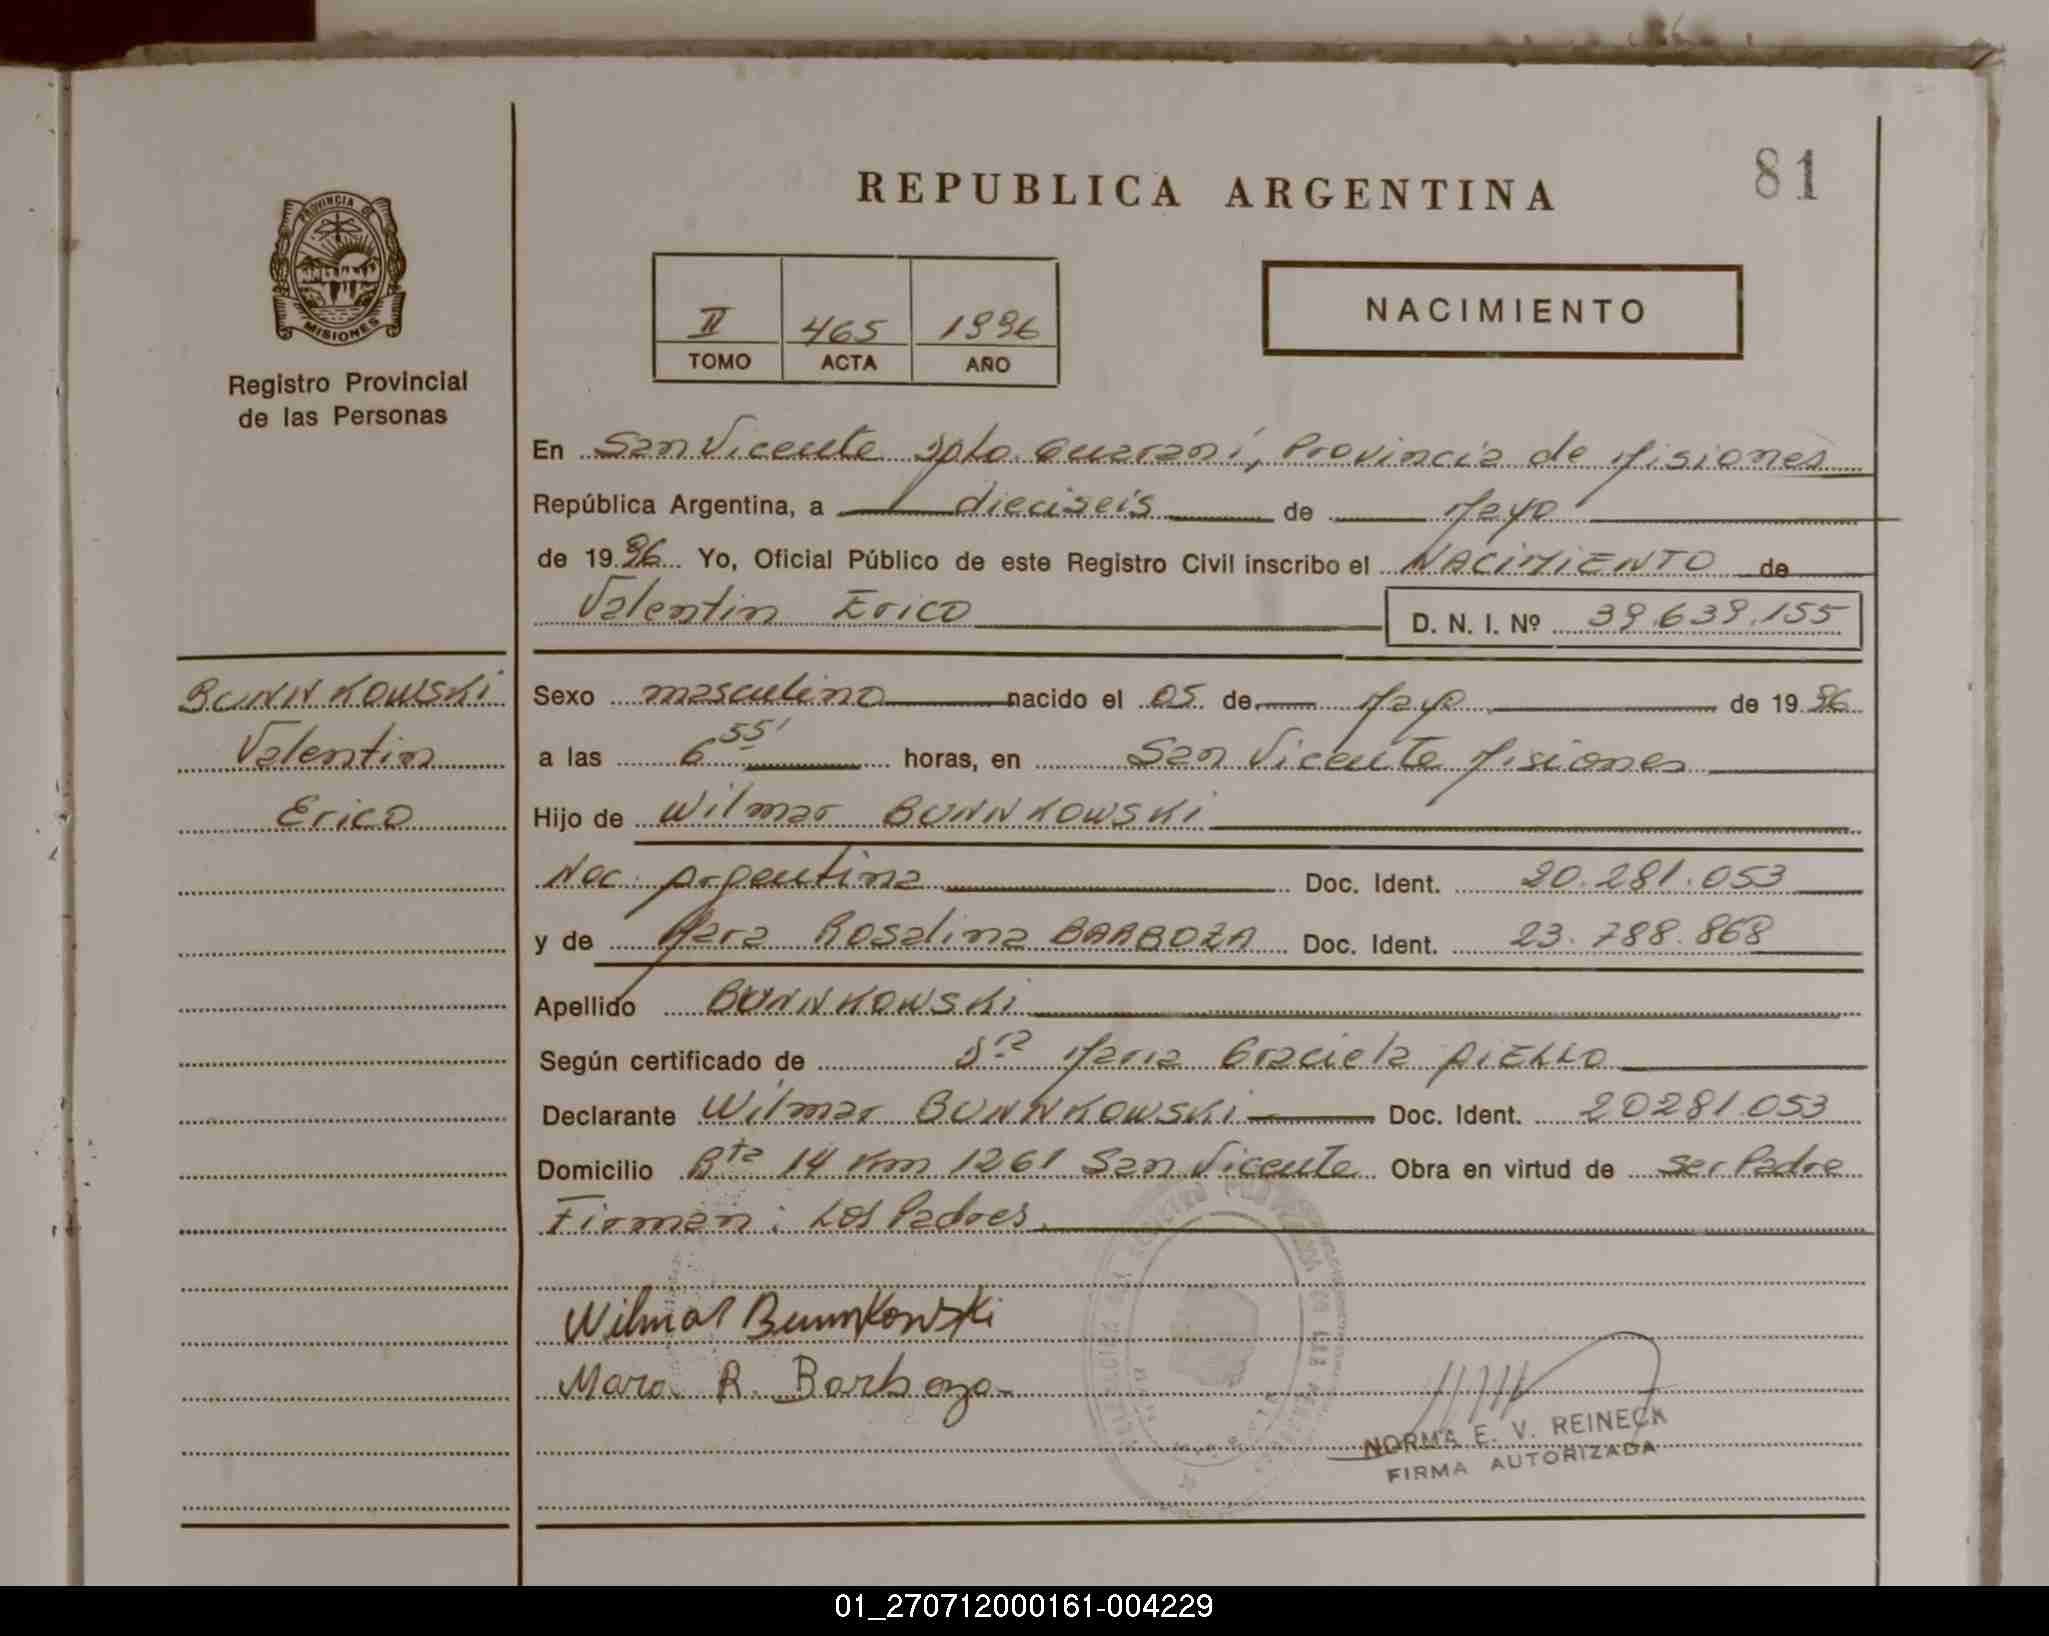 81
REPUBLICA ARGENTINA
PROVINCIA DE
MISIONES
Registro Provincial
de las Personas
II 465 1996
TOMO ACTA AÑO
NACIMIENTO
En San Vicente Dpto. Guaraní, Provincia de Misiones
República Argentina, a dieciseis de Mayo
de 1996 Yo, Oficial Público de este Registro Civil inscribo el NACIMIENTO de
Valentin Erico D. N. I. Nº 39.639.155
BUNNKOWSKI
Valentin
Erico
Sexo masculino nacido el 05 de Mayo de 1996
a las 6 55' horas, en San Vicente Misiones
Hijo de Wilmar BUNNKOWSKI
Nac. Argentina Doc. Ident. 20.281.053
y de Mara Rosalina BARBOZA Doc. Ident. 23.788.868
Apellido BUNNKOWSKI
Según certificado de Dra Maria Graciela AIELLO
Declarante Wilmar BUNNKOWSKI Doc. Ident. 20281.053
Domicilio Rta 14 Km 1261 San Vicente Obra en virtud de ser Padre
Firman: Los Padres.
Wilmar Bunnkowski
Mara R. Barboza
NORMA E. V. REINECK
FIRMA AUTORIZADA
01_270712000161-004229